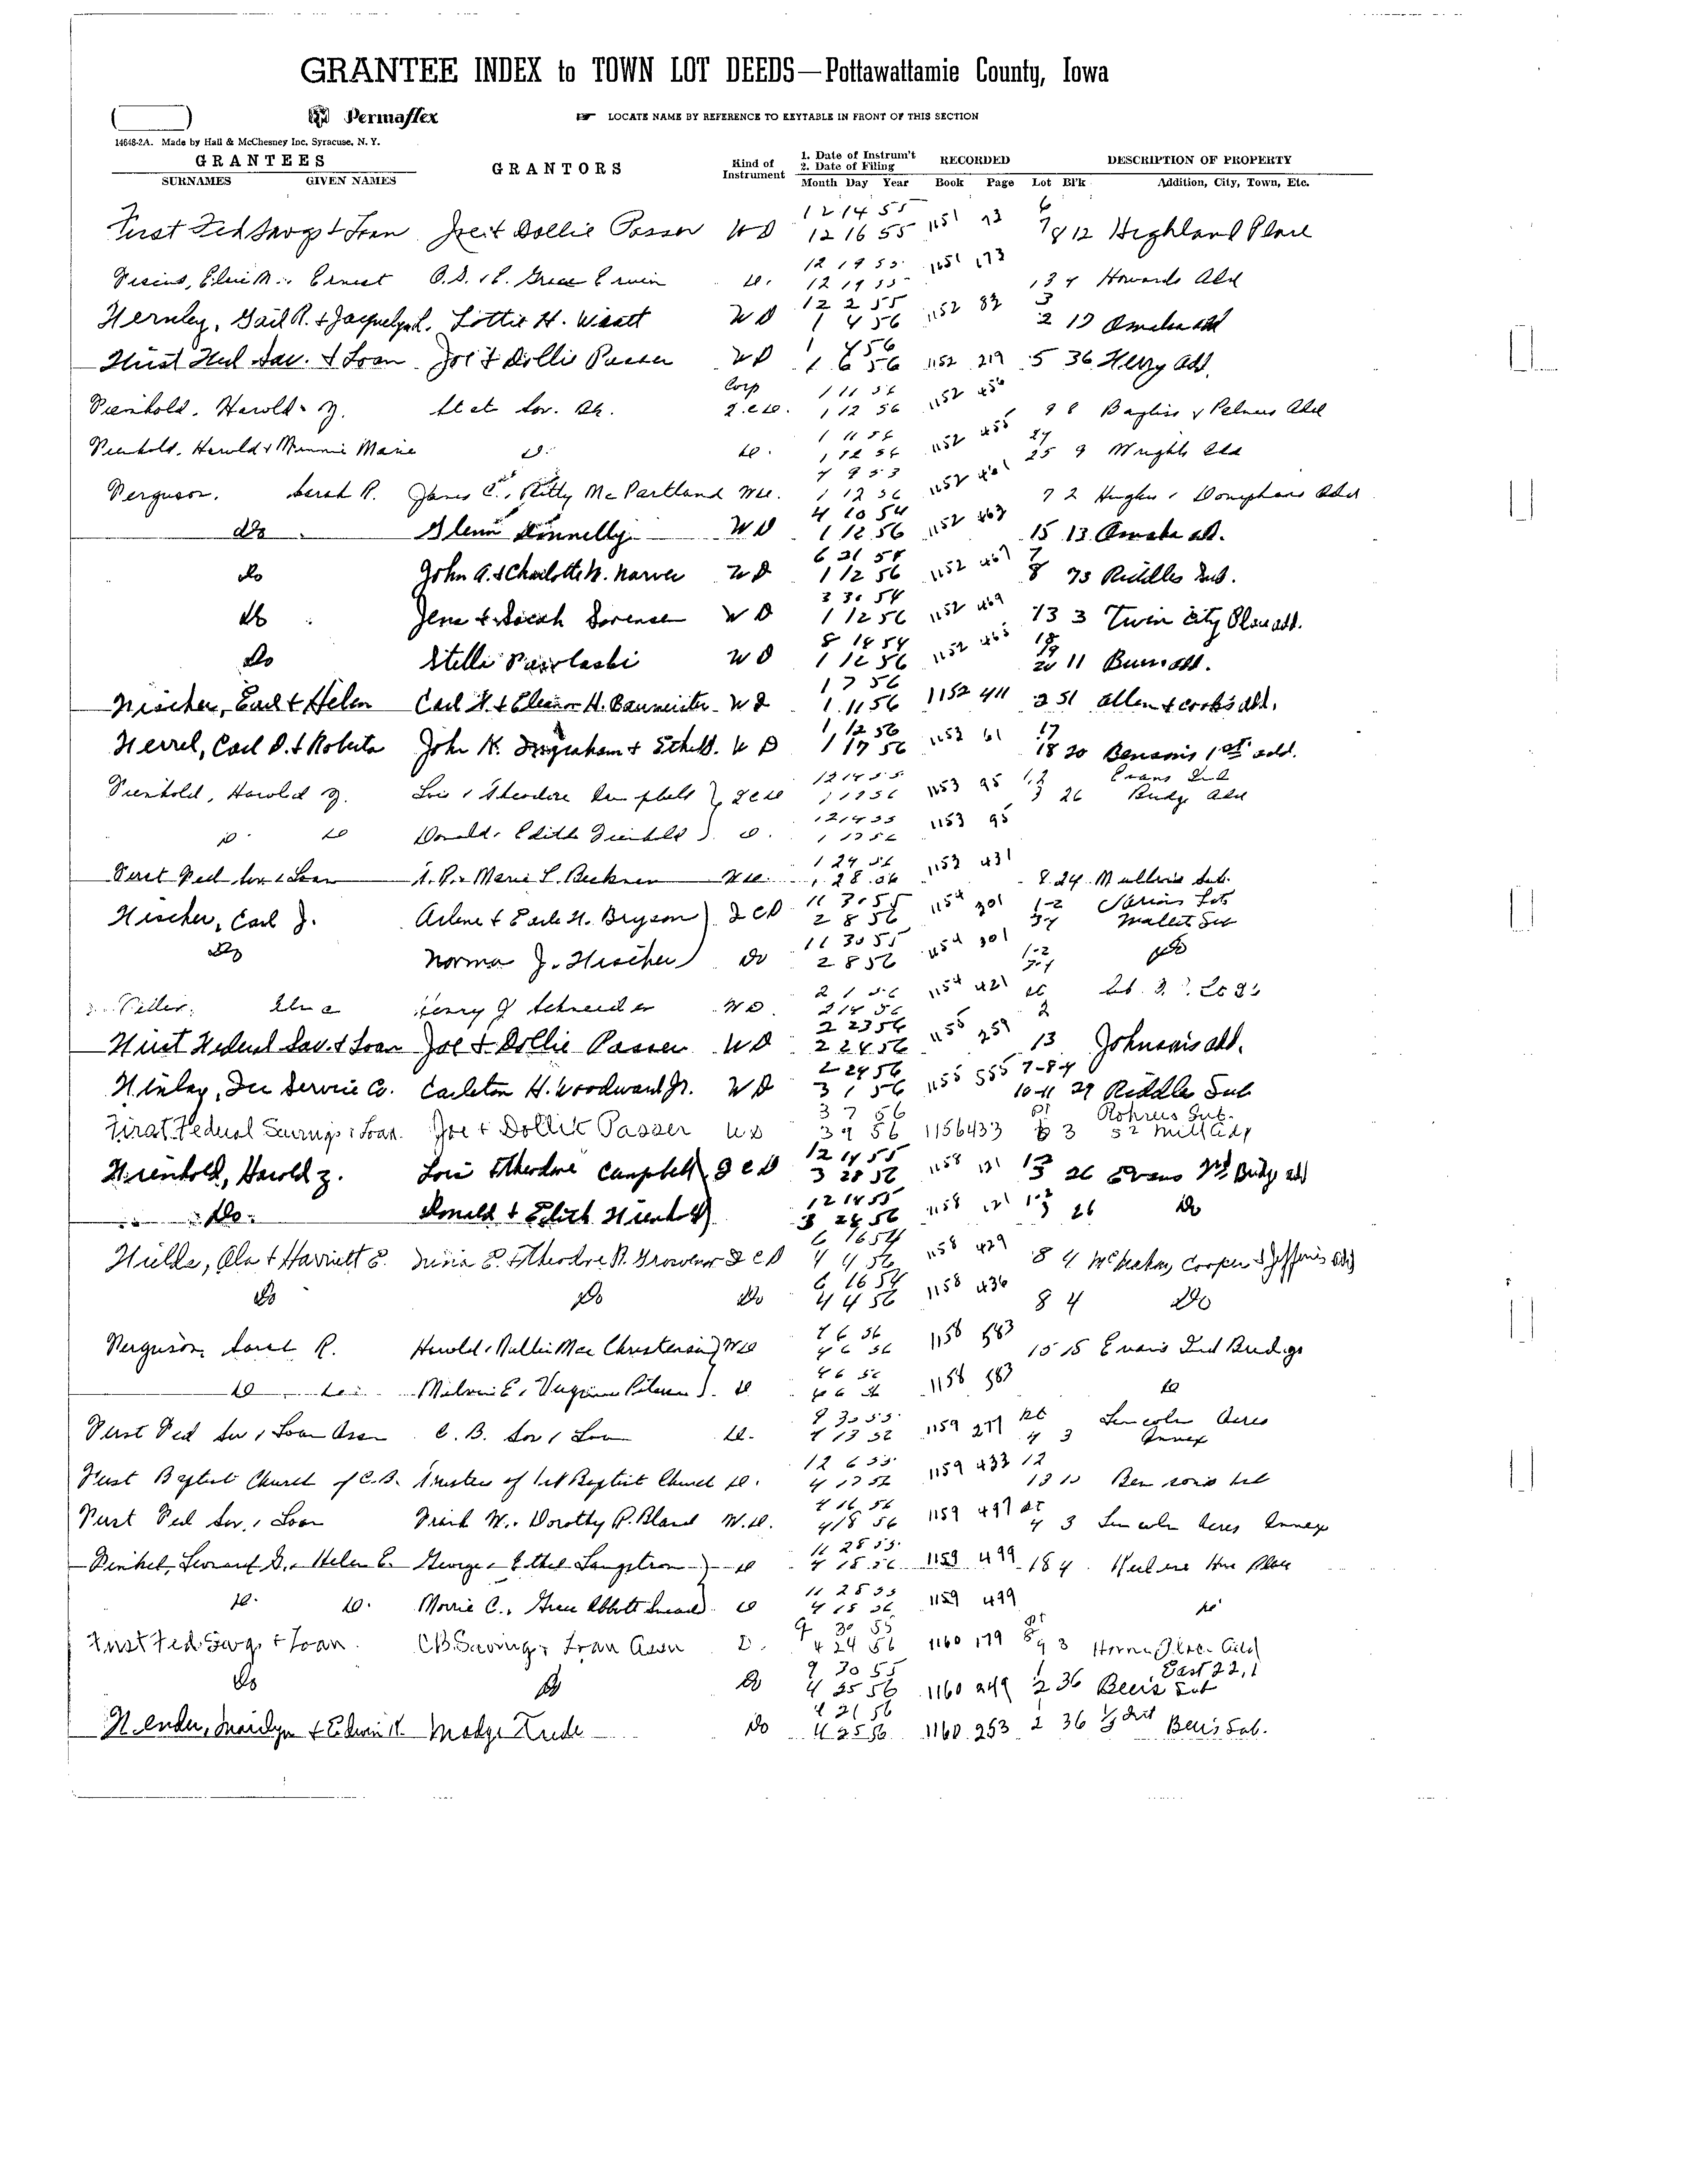 GRANTEE INDEX to TOWN LOT DEEDS—Pottawattamie County, Iowa
Permaflex LOCATE NAME BY REFERENCE TO KEYTABLE IN FRONT OF THIS SECTION
14648-2A. Made by Hall & McChesney Inc. Syracuse, N. Y.
GRANTEES GRANTORS Kind of Instrument 1. Date of Instrum't 2. Date of Filing RECORDED DESCRIPTION OF PROPERTY
SURNAMES GIVEN NAMES Month Day Year Book Page Lot Bl'k Addition, City, Town, Etc.
12 14 55 6
First Fed Savgs & Loan Joe & Dollie Passer WD 12 16 55 1151 73 7 8 12 Highland Place
12 19 55 1151 173
Ernest Grace Erwin 12 19 55 13 4 Howards Add
12 2 55 3
Gail R. & Jacquelyn L. Lottie H. Wiatt WD 1 4 56 1152 82 2 17 Omaha add
1 4 56
First Fed Sav. & Loan Joe & Dollie Passer WD 1 6 56 1152 219 5 36 Ferry add.
Corp 1 11 56
Fienhold, Harold Z. State Sav. Bk. Q.C.D. 1 12 56 1152 456 9 8 Bayliss & Palmers Add
1 11 56 24
Fienhold, Harold & Minnie Marie Do. Do. 1 12 56 1152 455 25 9 Wrights Add
4 9 53
Ferguson, Sarah R. James C. & Kitty McPartland WD. 1 12 56 1152 461 7 2 Hughes & Doniphans Add
4 10 54
Do Glenn Donnelly WD 1 12 56 1152 463 15 13 Omaha add.
6 21 54 7
Do John A. & Charlotte W. WD 1 12 56 1152 467 8 73 Riddles Sub.
3 30 54
Do Jens & Sarah Sorensen WD 1 12 56 1152 469 13 3 Twin City Place add.
8 14 54 18 19
Do Stella WD 1 12 56 1152 465 20 11 Burns add.
1 7 56
Fischer, Earl & Helen Carl F. & Eleanor H. Baumeister WD 1 11 56 1152 411 2 51 Allen & Cook's add.
1 12 56 17
Ferrel, Carl D. & Roberta John K. Ingraham & Ethel WD 1 17 56 1153 61 18 20 Bensons 1st add.
12 14 55 1,2 Evans 2nd
Fienhold, Harold Z. Lois & Theodore Campbell QCD 1 17 56 1153 95 3 26 Bridge Add
12 14 55
Do Do Donald & Edith Fienhold Do. 1 17 56 1153 95
1 24 56
First Fed Sav & Loan Marie L. Beckner WD. 1 28 56 1153 431 8 24 Mullins Sub.
11 30 55 1-2 Various Lots
Fischer, Carl J. Arlene & Earle H. Bryson QCD 2 8 56 1154 301 3-4 Sub
11 30 55 1-2
Do Norma J. Fischer Do 2 8 56 1154 301 3-4 Do
2 1 56 1154 421
Henry J Schneider WD 2 14 56 2
2 23 56
First Federal Sav. & Loan Joe & Dollie Passer WD 2 24 56 1155 259 13 Johnsons add.
2 24 56 7-8-9
Finley, Ice Service Co. Carleton H. Woodward Jr. WD 3 1 56 1155 555 10-11 29 Riddles Sub
3 7 56 pt Rohrers Sub.
First Federal Savings & Loan Joe & Dollie Passer WD 3 9 56 1156 433 3 Mill Add
12 14 55
Fienhold, Harold Z. Lois & Theodore Campbell QCD 3 28 56 1158 121 1-2 3 26 Evans 2nd Bridg add
12 14 55
Do Donald & Edith Fienhold 3 28 56 1158 121 1-2 3 26 Do
6 16 54
Fields, Ola & Harriett E. & Theodore R. Grosvenor QCD 4 4 56 1158 429 8 4 McMahon, Cooper & Jefferis add
6 16 54
Do Do Do 4 4 56 1158 436 8 4 Do
4 6 56
Ferguson, Sarah R. Harold & Nellie Mae Christensen WD 4 6 56 1158 583 15 15 Evans 2nd Bridge
4 6 56
Do Do Melvin E. & Virginia Do 4 6 56 1158 583 Do
9 30 55 pt Lincoln Acres
First Fed Sav & Loan Assn C. B. Sav & Loan Do. 4 13 56 1159 277 4 3 Annex
12 6 55 12
First Baptist Church of C.B. Trustees of 1st Baptist Church Do. 4 17 56 1159 433 13 10 Bensons 1st
4 16 56 pt
First Fed Sav. & Loan Frank W. & Dorothy P. Bland W.D. 4 18 56 1159 497 4 3 Lincoln Acres Annex
11 28 55
Finkel, Leonard G. & Helen E. George & Ethel Langstrom Do 4 18 56 1159 499 18 4 Place
11 28 55
Do. Do. Morris C. & Grace Abbott Do 4 18 56 1159 499 Do
9 30 55 pt
First Fed Svgs & Loan CB Savings & Loan Assn D. 4 24 56 1160 179 8 9 3 Horne Place Add
9 30 55 1 East 22,1
Do Do Do 4 25 56 1160 249 2 36 Beers Sub
4 21 56
Marilyn & Edwin K. Madge Do 4 25 56 1160 253 2 36 Beer's Sub.